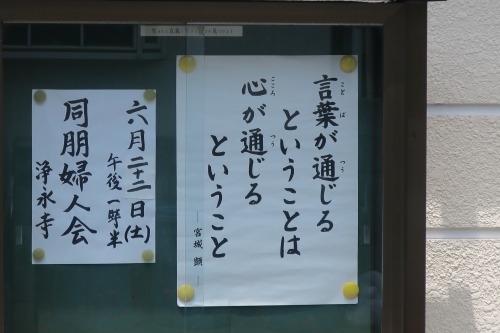 言葉が通じる
ということは
心が通じる
ということ
宮城 顗
六月二十二日(土)
午後一時半
同朋婦人会
浄永寺